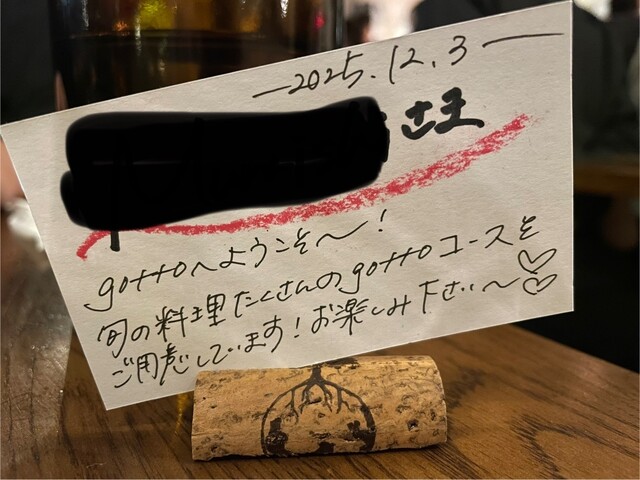 —2025.12.3—
さま
gottoへようこそ〜!
旬の料理たくさんのgottoコースを
ご用意しています!お楽しみ下さい〜♡♡